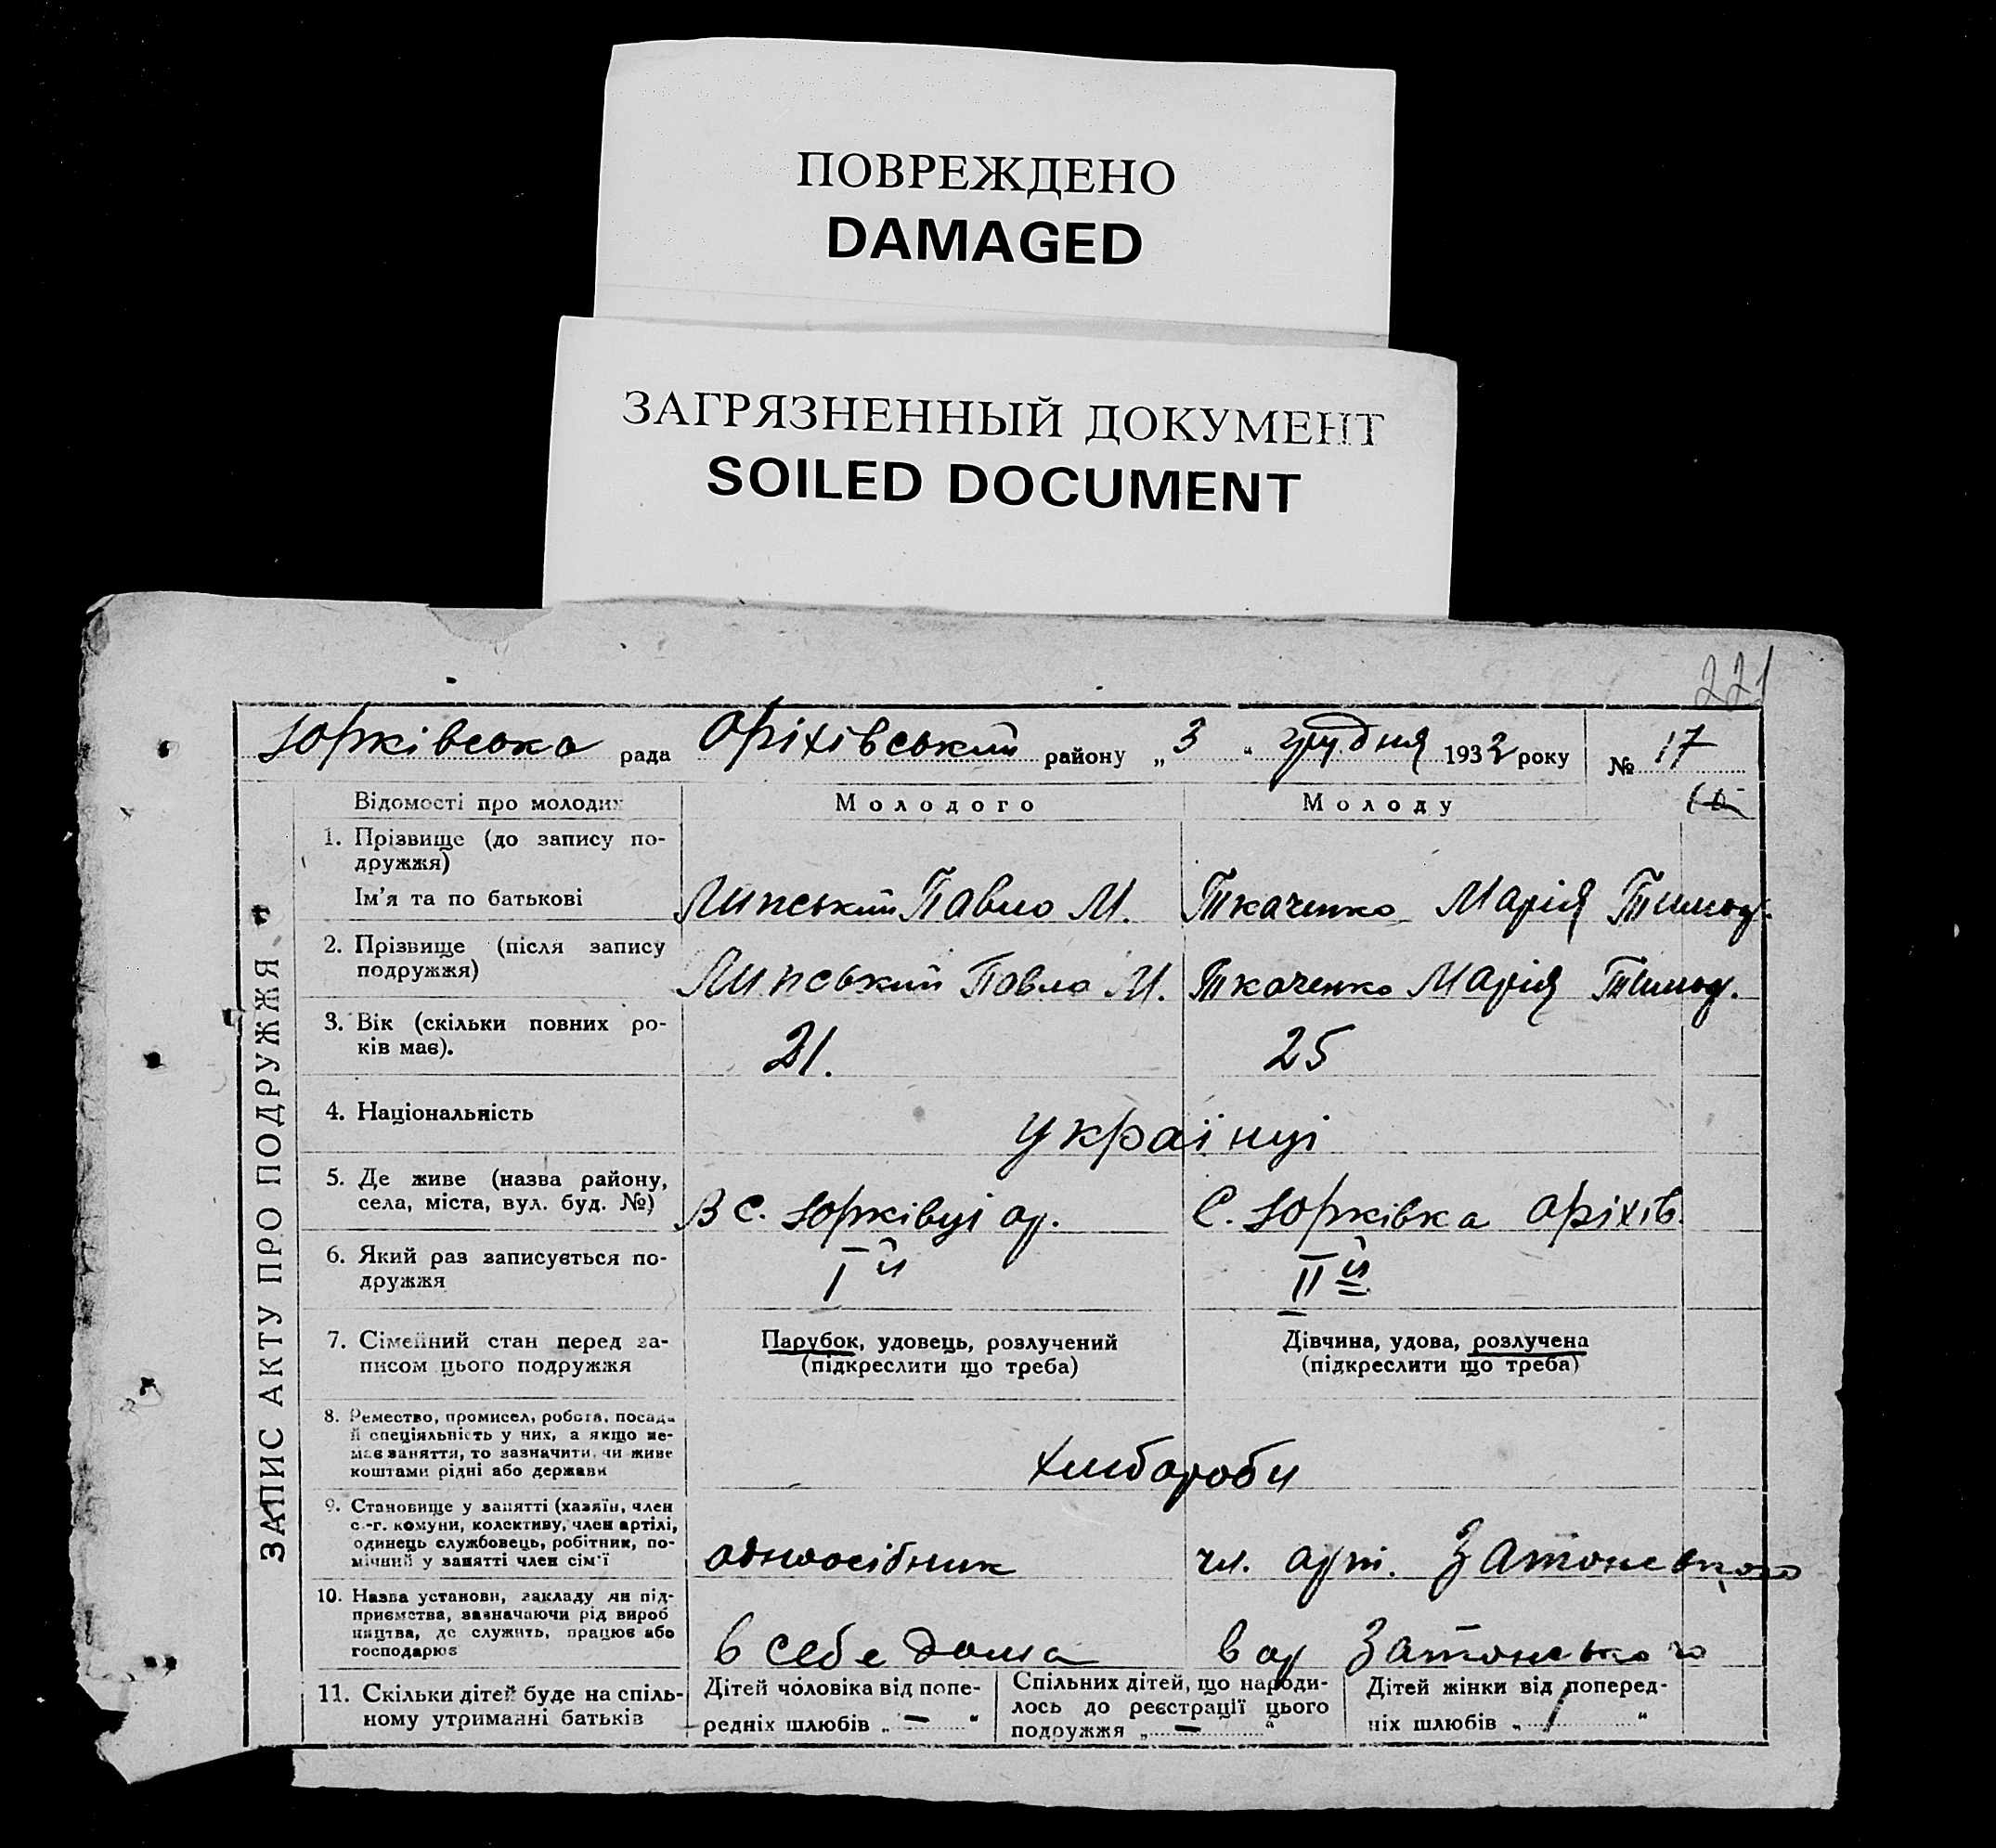 ПОВРЕЖДЕНО
DAMAGED
ЗАГРЯЗНЕННЫЙ ДОКУМЕНТ
SOILED DOCUMENT
221
Юрківська рада Оріхівський району „3“ грудня 1932 року № 17
ЗАПИС АКТУ ПРО ПОДРУЖЖЯ
Відомості про молодих Молодого Молоду
1. Прізвище (до запису по-
дружжя)
Ім’я та по батькові Липський Павло М. Ткаченко Марія Тимоф.
2. Прізвище (після запису
подружжя) Липський Павло М. Ткаченко Марія Тимоф.
3. Вік (скільки повних ро-
ків має). 21. 25
4. Національність українці
5. Де живе (назва району,
села, міста, вул. буд. №) В с. Юрківці ор. С. Юрківка Оріхів.
6. Який раз записується по-
дружжя I й II й
7. Сімейний стан перед за-
писом цього подружжя
Парубок, удовець, розлучений
(підкреслити що треба)
Дівчина, удова, розлучена
(підкреслити що треба)
8. Ремество, промисел, робота, посада
й спеціяльність у них, а якщо не-
має заняття, то зазначити, чи живе
коштами рідні або держави хлібороби
9. Становище у занятті (хазяїн, член
с.-г. комуни, колективу, член артілі,
одинець службовець, робітник, по-
мічний у занятті член сім’ї одноосібник чл. арт. Затонського
10. Назва установи, закладу ян під-
приємства, зазначаючи рід вироб
ництва, де служить, працює або
господарює в себе дома в ар Затонського
11. Скільки дітей буде на спіль-
ному утриманні батьків
Дітей чоловіка від попе-
редніх шлюбів „ — “
Спільних дітей, що народи-
лось до реєстрації цього
подружжя „ — “
Дітей жінки від поперед-
ніх шлюбів „ / “